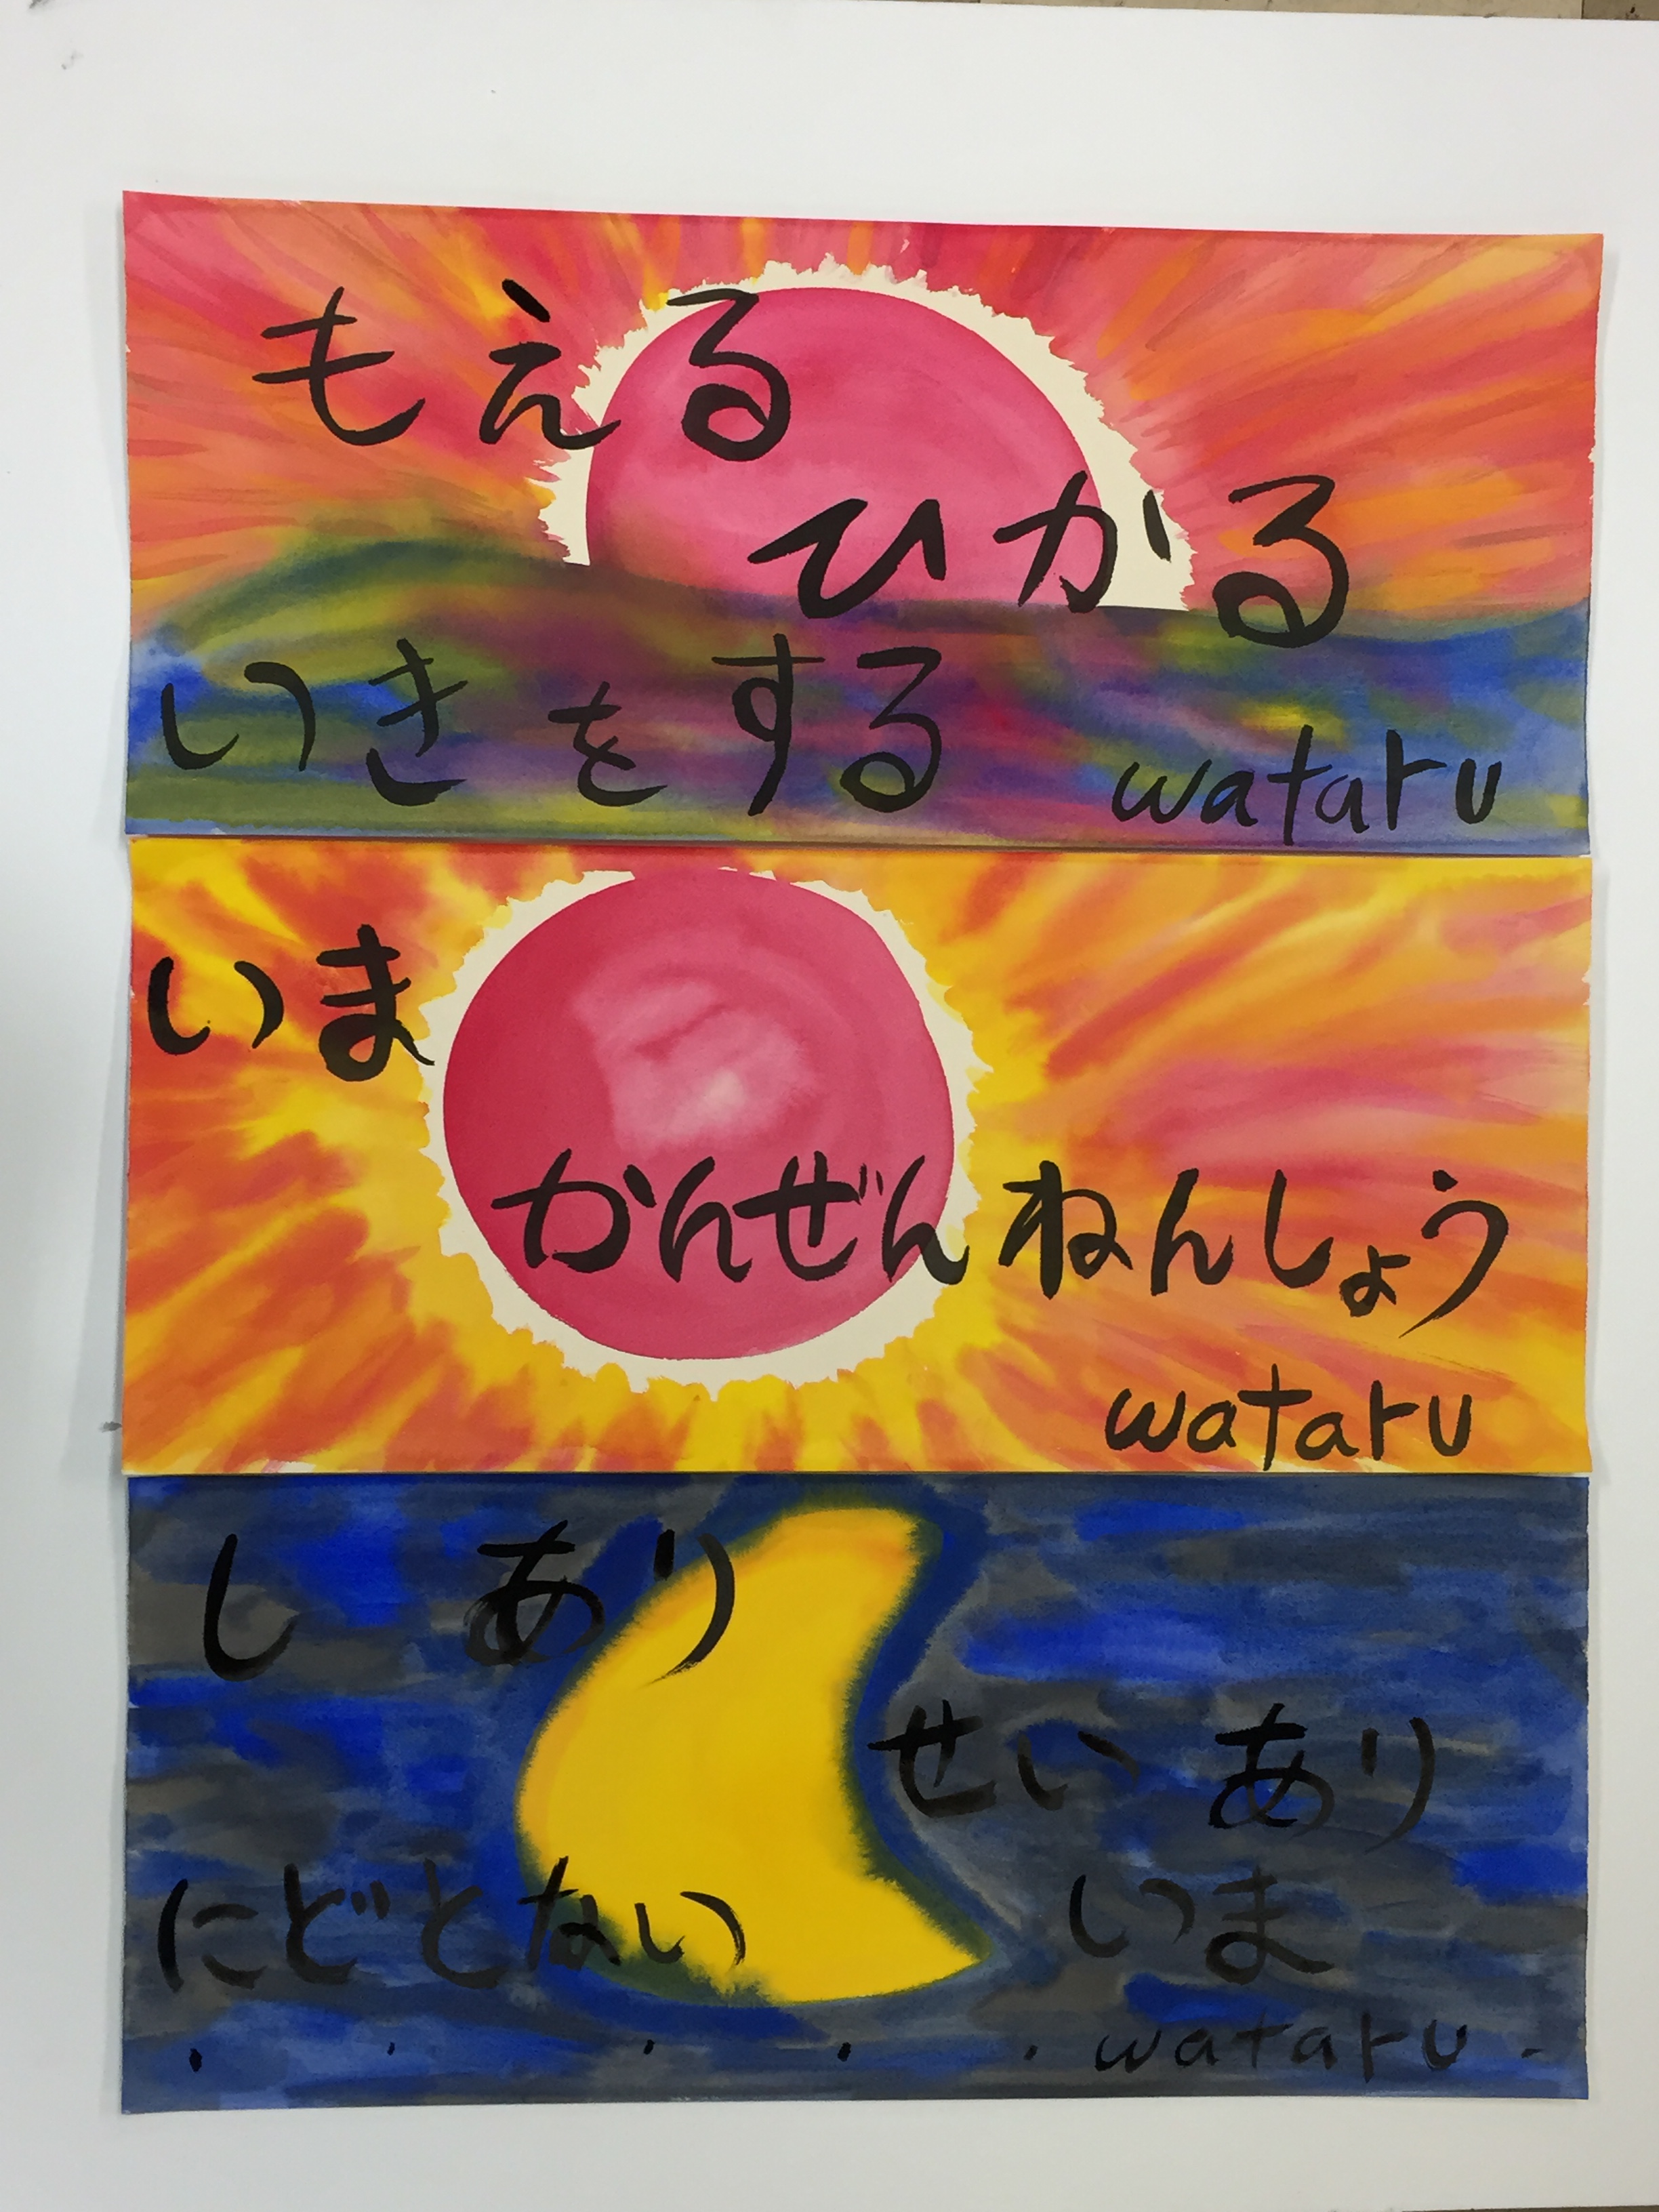 もえる
ひかる
いきをする
wataru
いま
かんぜんねんしょう
wataru
し あり
せい あり
にどとない いま
wataru